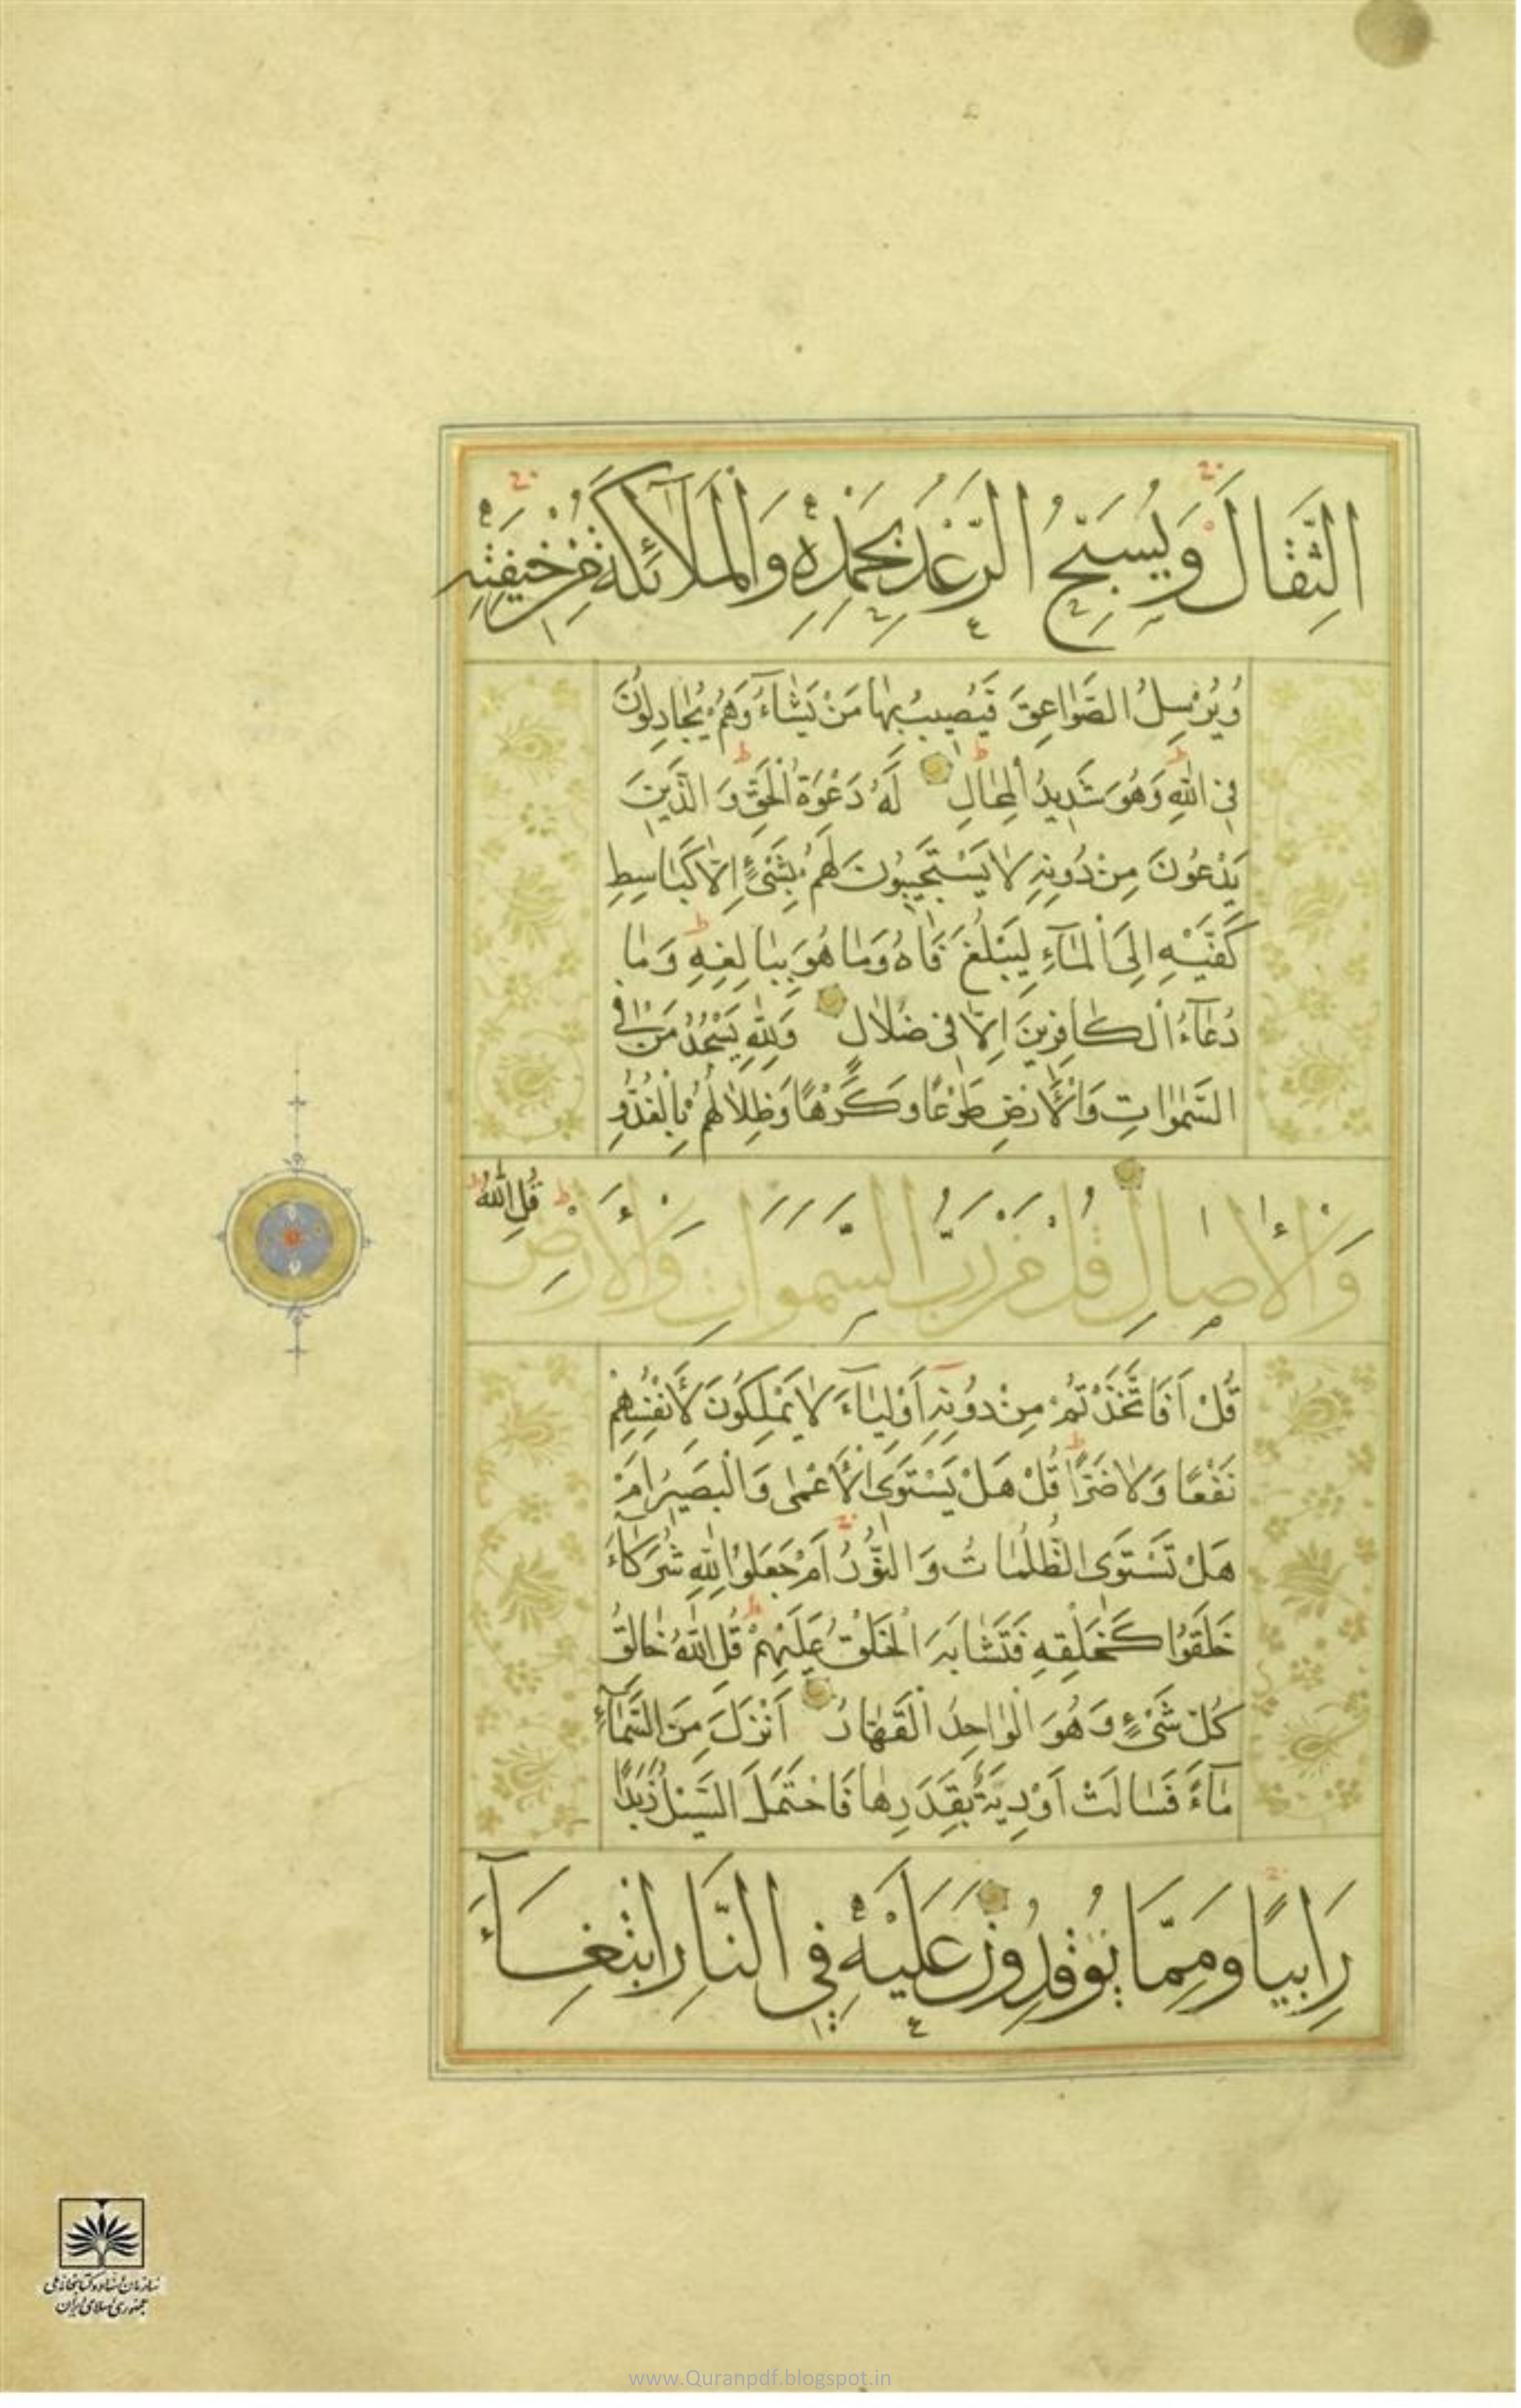 الثِّقَالَ وَيُسَبِّحُ الرَّعْدُ بِحَمْدِهِ وَالْمَلَآئِكَةُ مِنْ خِيفَتِهِ
وَيُرْسِلُ الصَّوَاعِقَ فَيُصِيبُ بِهَا مَنْ يَشَآءُ وَهُمْ يُجَادِلُونَ
فِي اللّٰهِ وَهُوَ شَدِيدُ الْمِحَالِ لَهُ دَعْوَةُ الْحَقِّ وَ الَّذِينَ
يَدْعُونَ مِنْ دُونِهِ لَا يَسْتَجِيبُونَ لَهُمْ بِشَيْءٍ إِلَّا كَبَاسِطِ
كَفَّيْهِ إِلَى الْمَآءِ لِيَبْلُغَ فَاهُ وَمَا هُوَ بِبَالِغِهِ وَمَا
دُعَآءُ الْكَافِرِينَ اِلَّا فِي ضَلَالٍ وَلِلّٰهِ يَسْجُدُ مَنْ فِي
السَّمٰوَاتِ وَالْأَرْضِ طَوْعًا وَكَرْهًا وَظِلَالُهُمْ بِالْغُدُوِّ
وَالْاٰصَالِ قُلْ مَنْ رَبُّ السَّمٰوَاتِ وَالْأَرْضِ قُلِ اللّٰهُ
قُلْ اَفَاتَّخَذْتُمْ مِنْ دُونِهِ اَوْلِيَآءَ لَا يَمْلِكُونَ لِأَنْفُسِهِمْ
نَفْعًا وَلَا ضَرًّا قُلْ هَلْ يَسْتَوِي الْأَعْمٰى وَالْبَصِيرُ اَمْ
هَلْ تَسْتَوِي الظُّلُمَاتُ وَ النُّورُ اَمْ جَعَلُوا لِلّٰهِ شُرَكَآءَ
خَلَقُوا كَخَلْقِهِ فَتَشَابَهَ الْخَلْقُ عَلَيْهِمْ قُلِ اللّٰهُ خَالِقُ
كُلِّ شَيْءٍ وَهُوَ الْوَاحِدُ الْقَهَّارُ اَنْزَلَ مِنَ السَّمَآءِ
مَآءً فَسَالَتْ اَوْدِيَةٌ بِقَدَرِهَا فَاحْتَمَلَ السَّيْلُ زَبَدًا
رَابِيًا وَمِمَّا يُوقِدُونَ عَلَيْهِ فِي النَّارِ ابْتِغَآءَ
سازمان اسناد و کتابخانه ملی
جمهوری اسلامی ایران
www.Quranpdf.blogspot.in